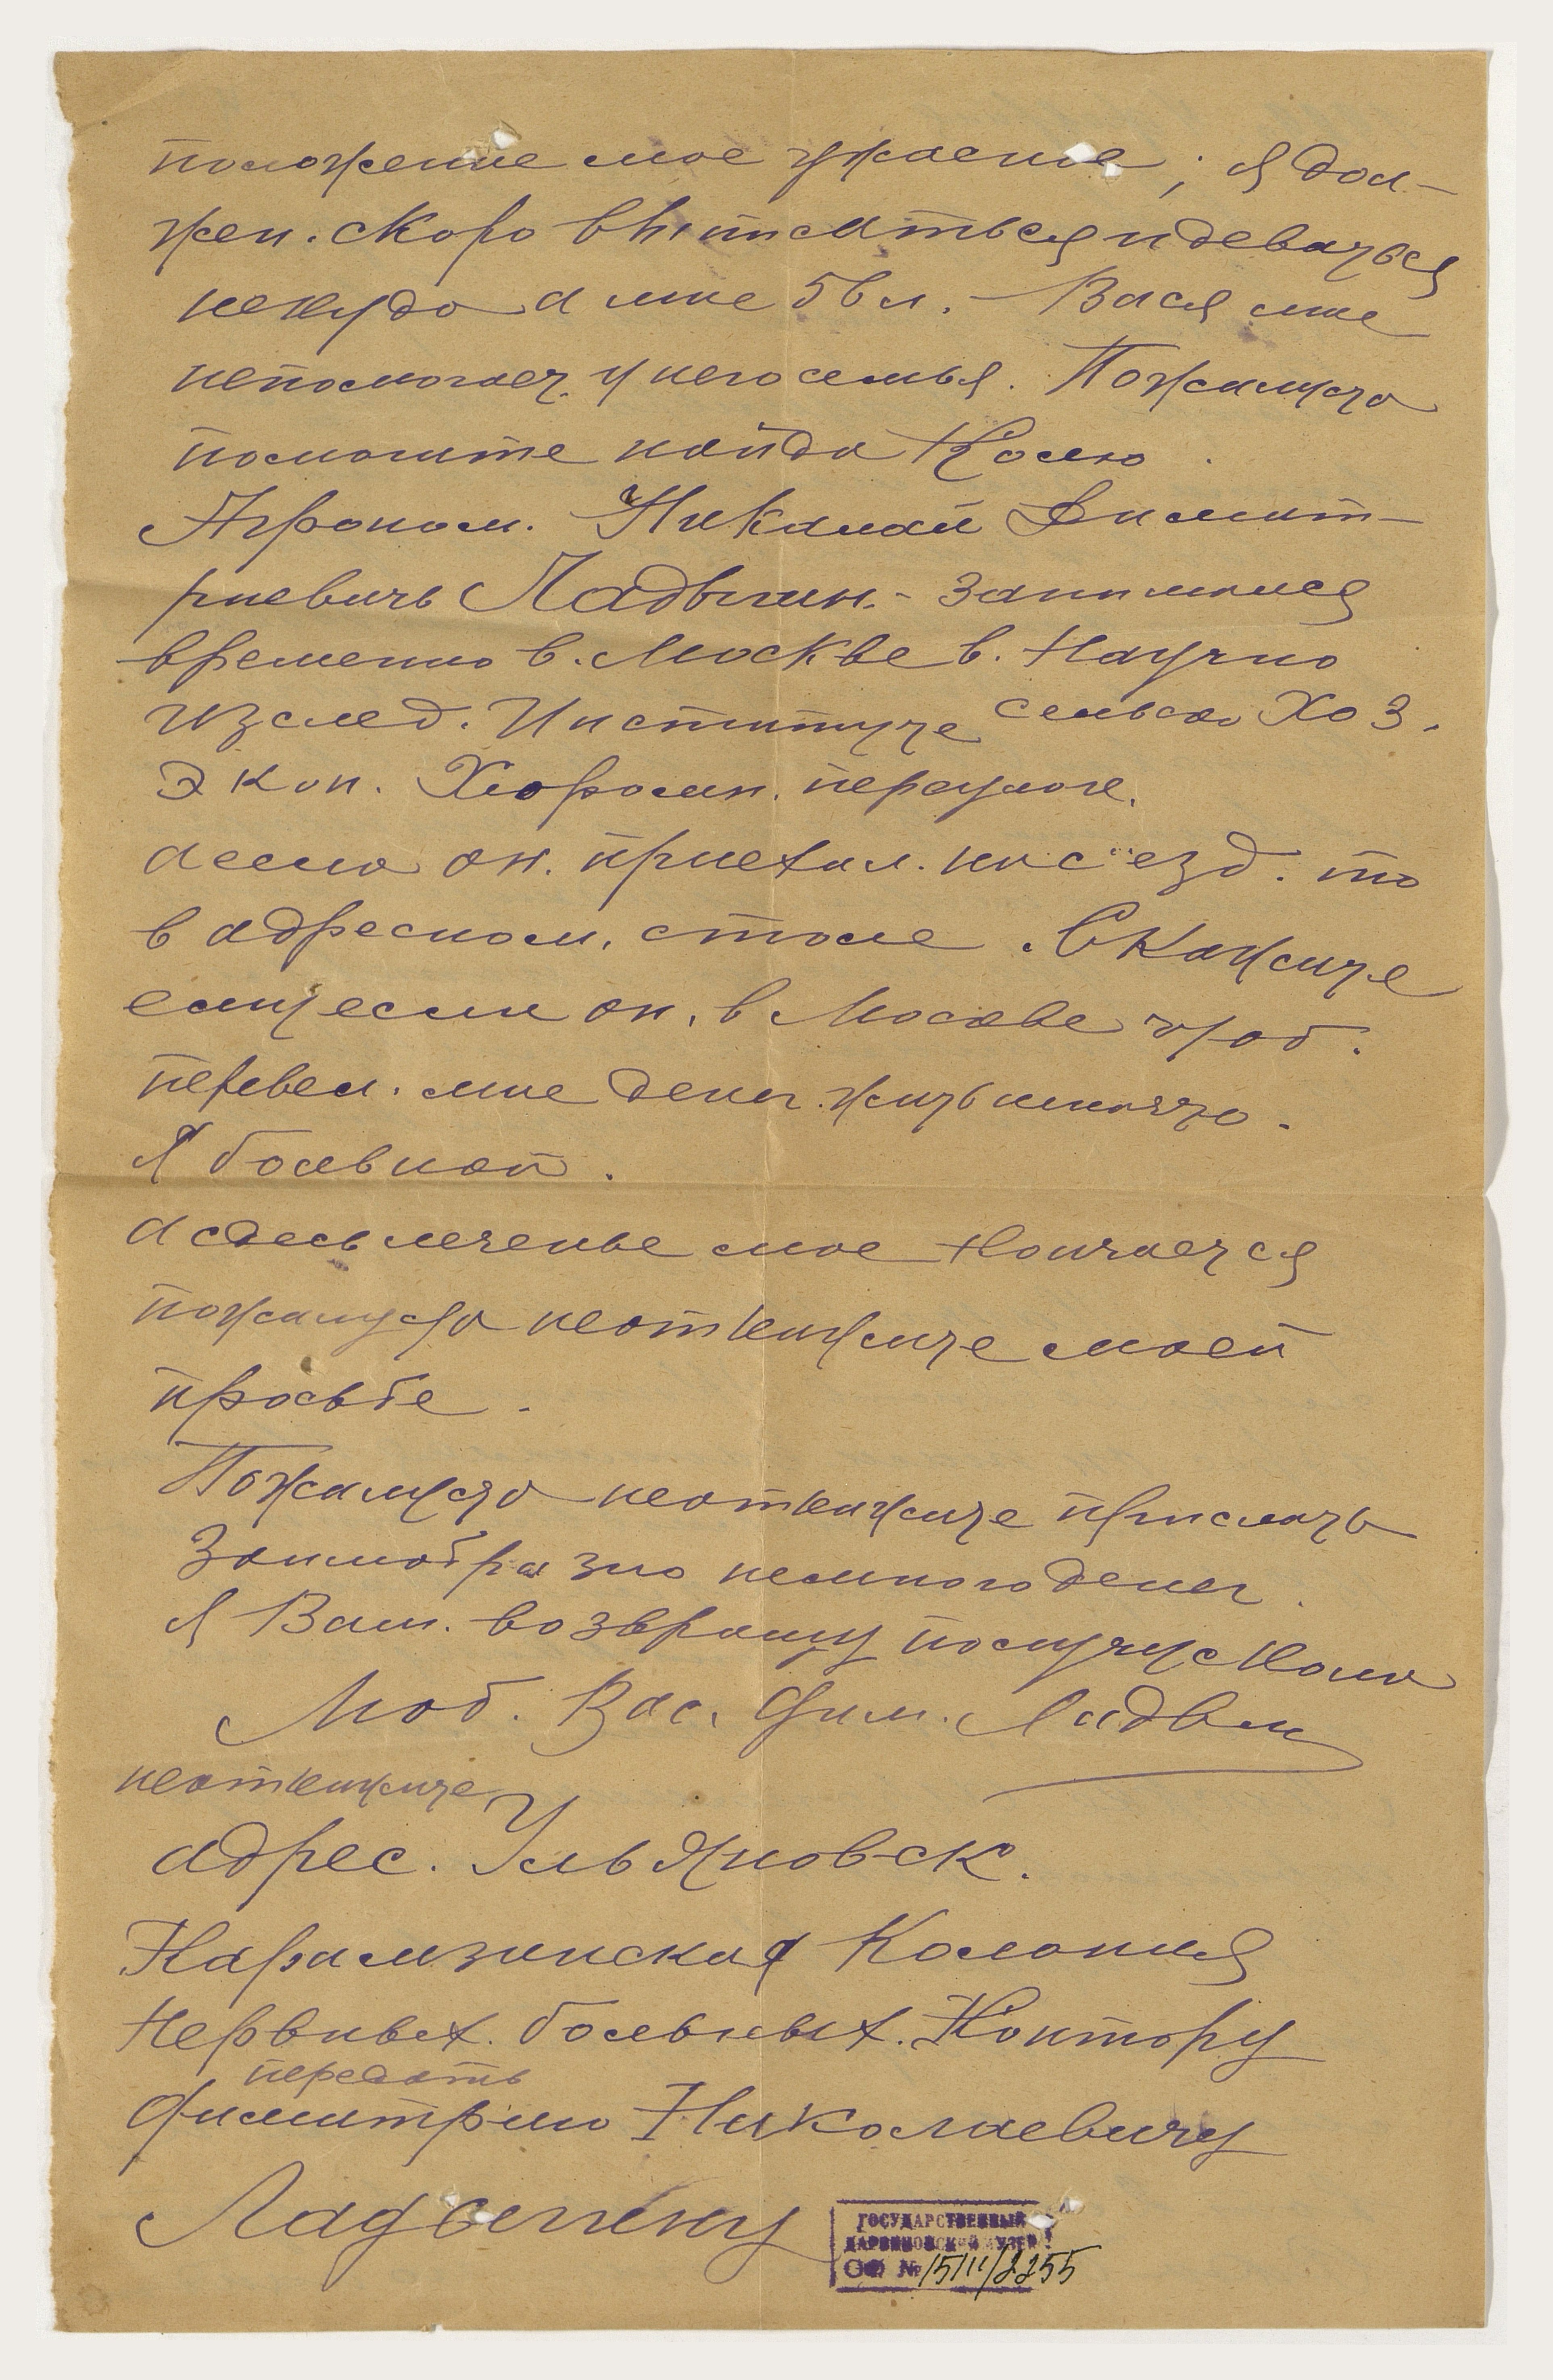 положение мое ужасное, я дол-
жен. скоро выписаться и деваться
некуда а мне 56 л. – Вася мне
непомогает. у него семья. Пожалуста
помогите найдя Колю.
Агроном. Николай Димит-
риевичь Ладыгин. - занимался
временно в. Москве в. Научно
изслед. Институте сельско Хоз.
Экон. переулок.
а если он. приехал. на с'езд. то
в адресном. столе. Скажите
ему если он. в Москве чтоб.
перевел. мне денег. жить
Я больной.
а сдесь леченье мое кончается
пожалуста неоткажите моей
просьбе.
Пожалуста неоткажите прислать
Заимобразно немного денег.
я Вам. возвращу получу с Коли
Люб. Вас. Дим. Ладыг
неоткажите
адрес. Ульяновск.
Карамзинская Колония
Нервных. больных. Контору
передать
Димитрию Николаевичу
Ладыгину
ГОСУДАРСТВЕННЫЙ
ДАРВИНОВСКИЙ МУЗЕЙ
ОФ № 15111/2255